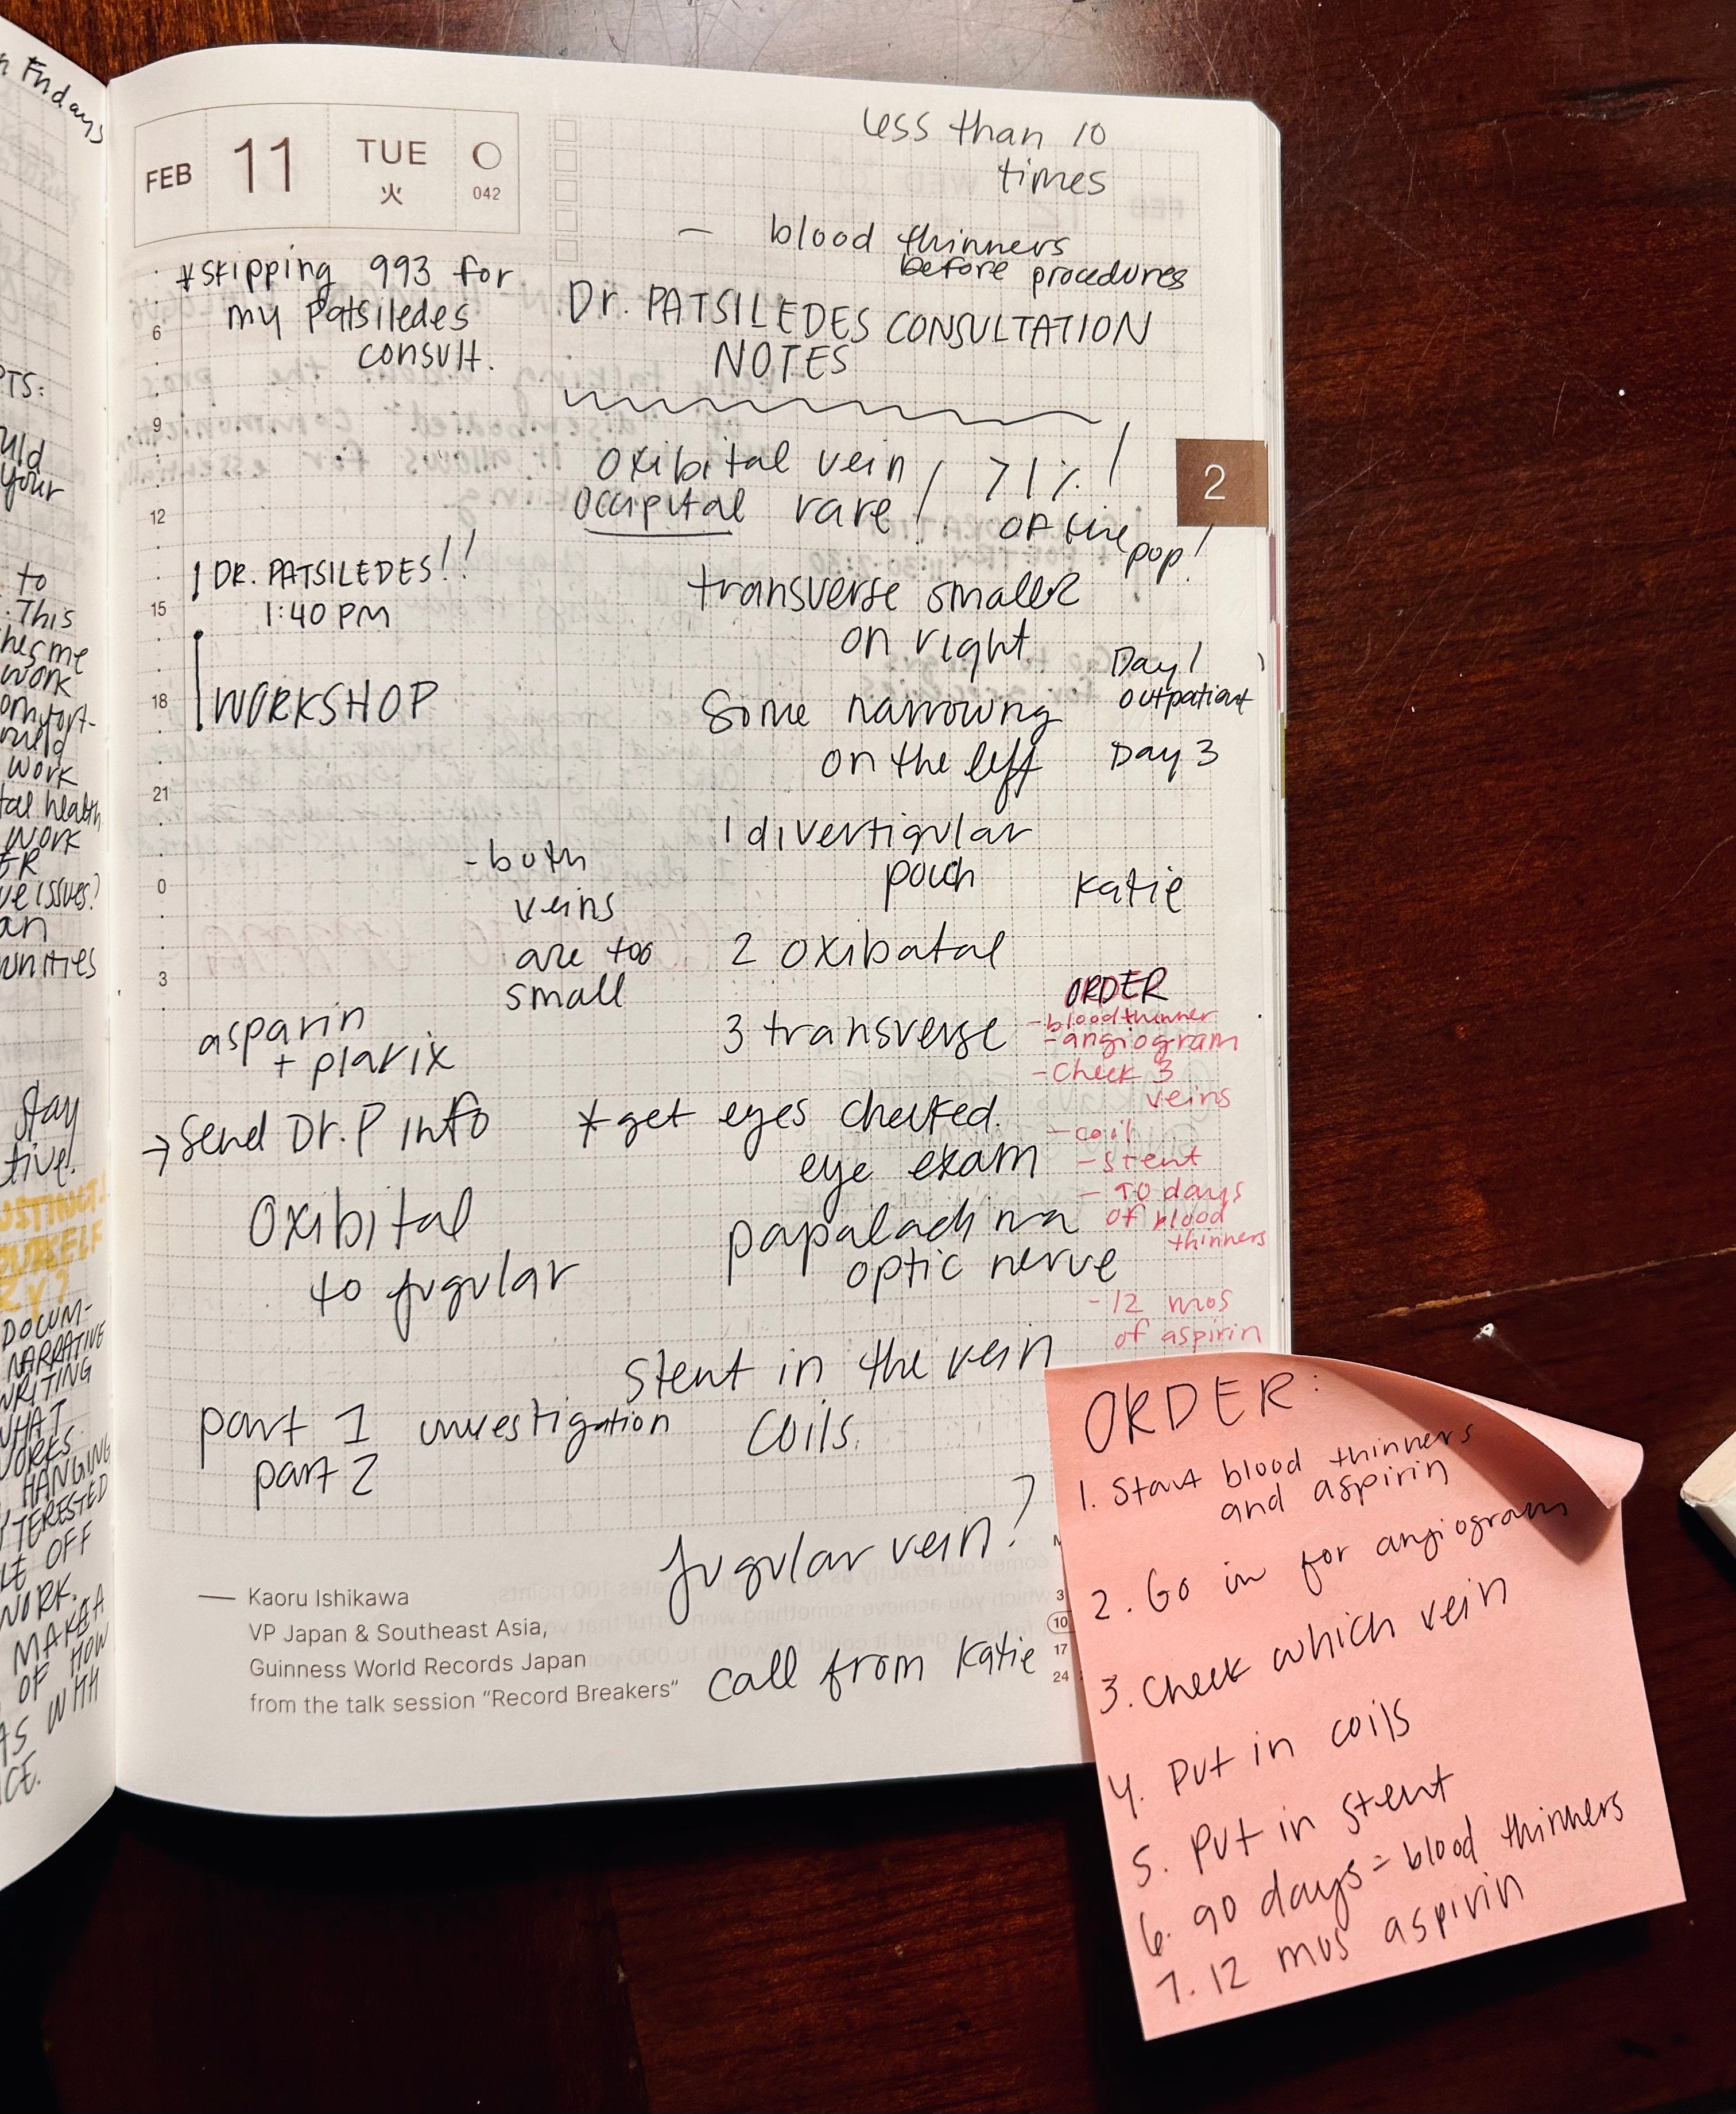 Fridays
FEB 11 TUE
火 042
less than 10
times
- blood thinners
before procedures
*skipping 993 for
my Patsiledes
consult.
Dr. PATSILEDES CONSULTATION
NOTES
6
9
12
15
18
21
0
3
2
oxibital vein
occipital rare!
! 71% !
OF the
pop!
! DR. PATSILEDES!!
1:40 PM
WORKSHOP
transverse smaller
on right
Some narrowing
on the left
Day 1
outpatient
Day 3
1 divertigular
pouch
Katie
- both
veins
are too
small
2 oxibatal
3 transverse
asparin
+ plavix
ORDER
- blood thinner
- angiogram
- Check 3
veins
- coil
- stent
- 90 days
of blood
thinners
- 12 mos
of aspirin
→ Send Dr. P info
*get eyes checked.
eye exam
Oxibital
to jugular
optic nerve
stent in the vein
coils.
part 1 investigation
part 2
jugular vein?
call from Katie
— Kaoru Ishikawa
VP Japan & Southeast Asia,
Guinness World Records Japan
from the talk session "Record Breakers"
3
10
17
24
ORDER:
1. Start blood thinners
and aspirin
2. Go in for angiogram
3. Check which vein
4. Put in coils
5. Put in stent
6. 90 days = blood thinners
7. 12 mos aspirin
to
This
me
work
work
health
work
an
stay
NARRATIVE
WRITING
WHAT
WORKS
OFF
WORK.
OF HOW
WITH